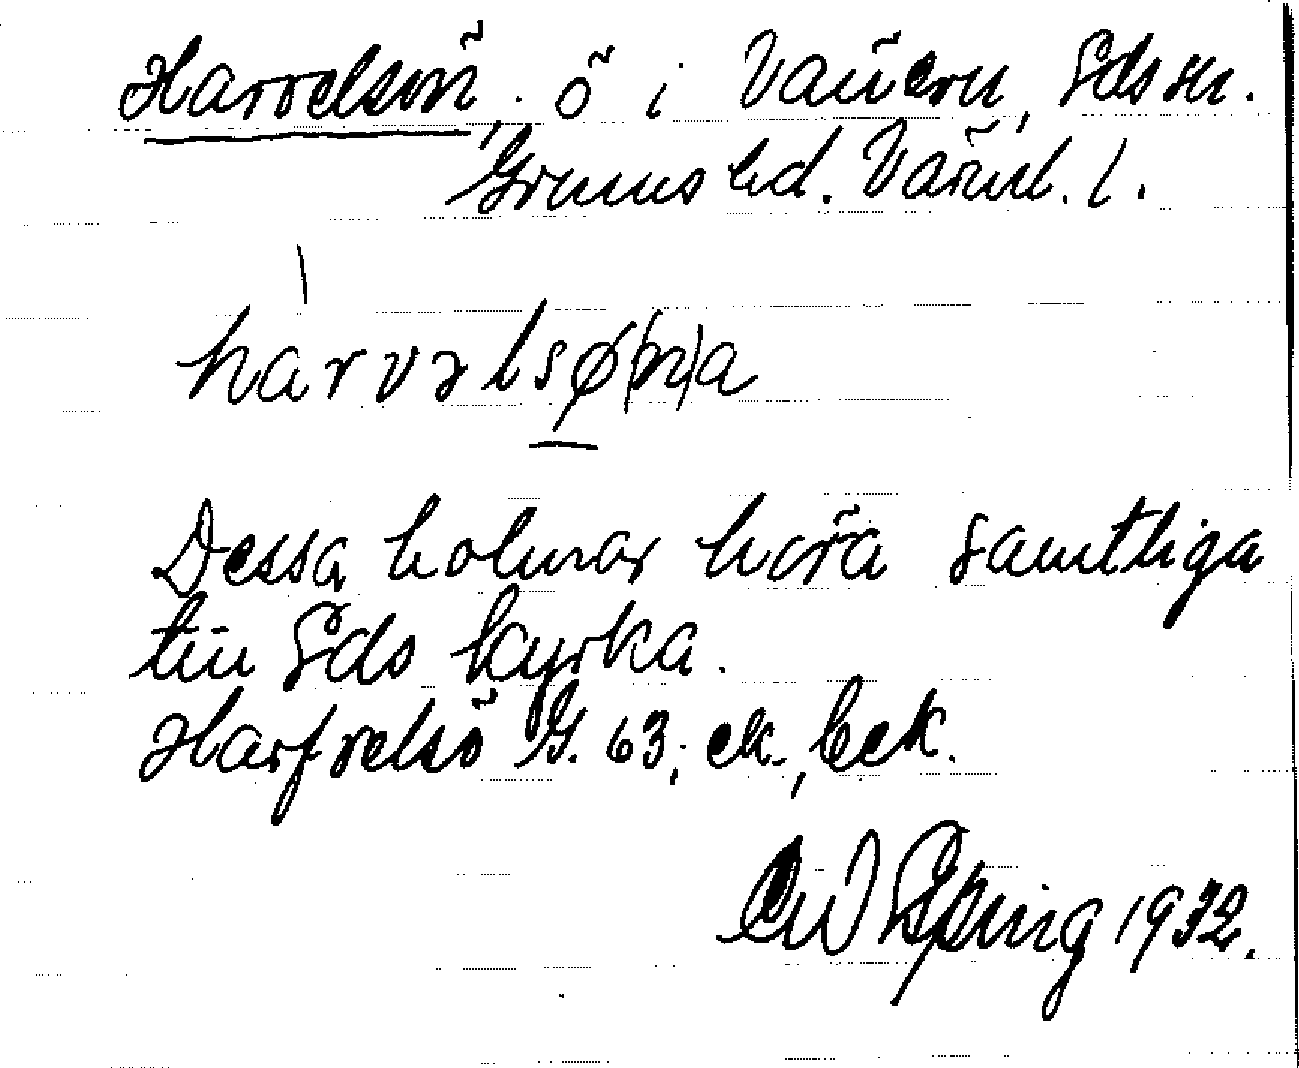 Harvelsön, ö i Vänern, Eds sn.
Grums hd. Värml. l.
harvəlsø(n)a
Dessa holmar höra samtliga
till Eds kyrka.
Harfvelsö G. 63; ek., bek.
Spring 1932.